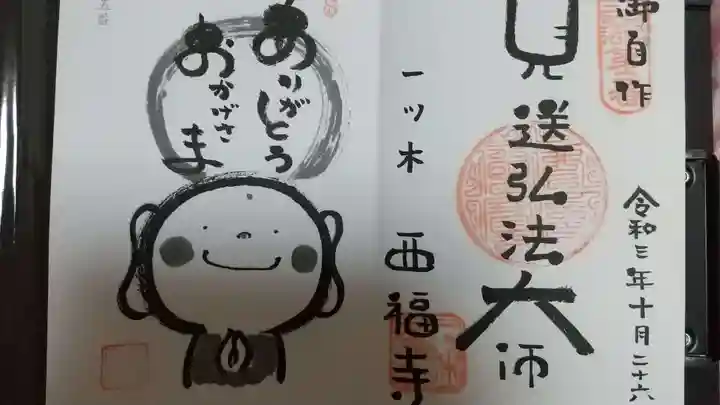 御自作
見送弘法大師
令和三年十月二十六
一ツ木 西福寺
ありがとう
おかげさま